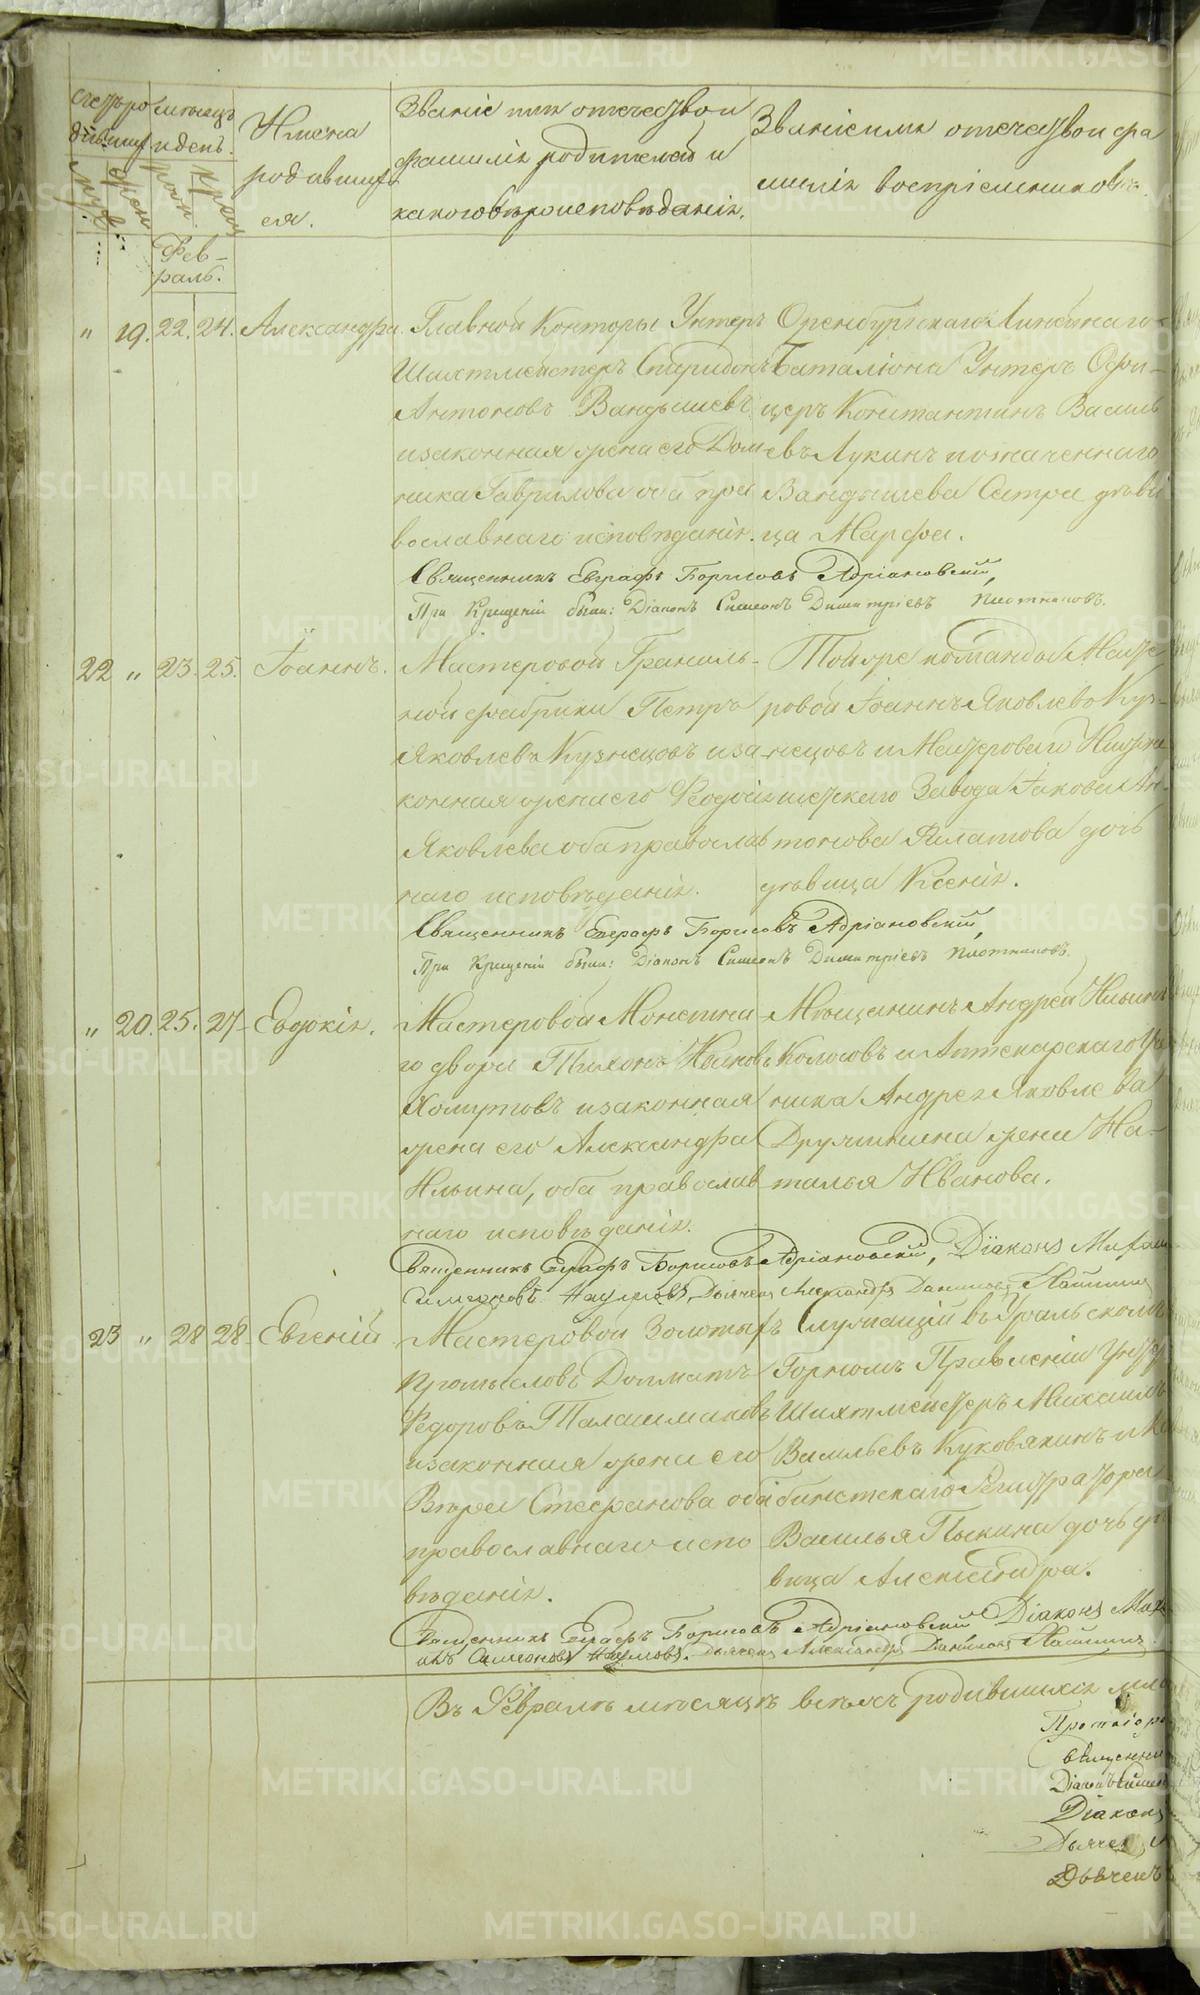 Счетъ ро
дившихся
муж.
жен.
мѣсяцъ
и день.
рож.
крещ.
Имена
родивших
ся.
Званіе имя отчество и
фамилія родителей и
какого вѣроисповѣданія.
Званіе имя отчество и фа
милія воспріемниковъ.
Фев-
раль.
" 19. 22. 24. Александра.
Главной Конторы Унтеръ
Шихтмейстеръ Спиридонъ
Антоновъ Вандышевъ
и законная жена его Дом
ника Гаврилова оба пра
вославнаго исповѣданія.
Оренбургскаго Линейнаго
Баталіона Унтеръ Офи-
церъ Константинъ Василь
евъ Лукинъ и означеннаго
Вандышева Сестра дѣви
ца Марфа.
Священникъ Евграфъ Борисовъ Адріановскій,
При Крещеніи были: Діаконъ Симеонъ Димитріевъ Плотниковъ.
22 " 23. 25. Іоаннъ.
Мастеровой Граниль-
ной фабрики Петръ
Яковлевъ Кузнецовъ и за
конная жена его Ѳеодосія
Яковлева оба православ
наго исповѣданія.
Той же команды Масте
ровой Іоаннъ Яковлевъ Куз-
нецовъ и Мастероваго Нижне
исетскаго Завода Іакова Ан-
тонова Филатова дочь
дѣвица Ксенія.
Священникъ Евграфъ Борисовъ Адріановскій,
При Крещеніи были: Діаконъ Симеонъ Димитріевъ Плотниковъ.
" 20. 25. 27. Евдокія.
Мастеровой Монетна
го двора Тихонъ Ивановъ
Хомутовъ и законная
жена его Александра
Ильина, оба православ
наго исповѣданія.
Мѣщанинъ Андрей Ильинъ
Колосовъ и Аптекарскаго Уче
ника Андрея Яковлева
Дружинина жена На-
талья Иванова.
Священникъ Евграфъ Борисовъ Адріановскій, Діаконъ Михаи
Симеоновъ Наумовъ, Дьячекъ Александръ Даниловъ
23 " 28 28 Евгеній
Мастеровой Золотыхъ
Промысловъ Долматъ
Ѳедоровъ Талашмановъ
и законная жена его
Вѣра Стефанова оба
православнаго испо
вѣданія.
Служащій въ Уральскомъ
Горномъ Правленіи Унтеръ
Шихтмейстеръ Михаилъ
Васильевъ Куковякинъ и Ка
бинетскаго Регистратора
Василья Пыкина дочь дѣ
вица Александра.
Священникъ Евграфъ Борисовъ Адріановскій Діаконъ Миха
илъ Симеоновъ Наумовъ. Дьячекъ Александръ Даниловъ
Въ Февралѣ мѣсяцѣ всѣхъ родившихся
Протоіере
Священни
Діаконъ Симеон
Діаконъ
Дьячек
Дьячекъ